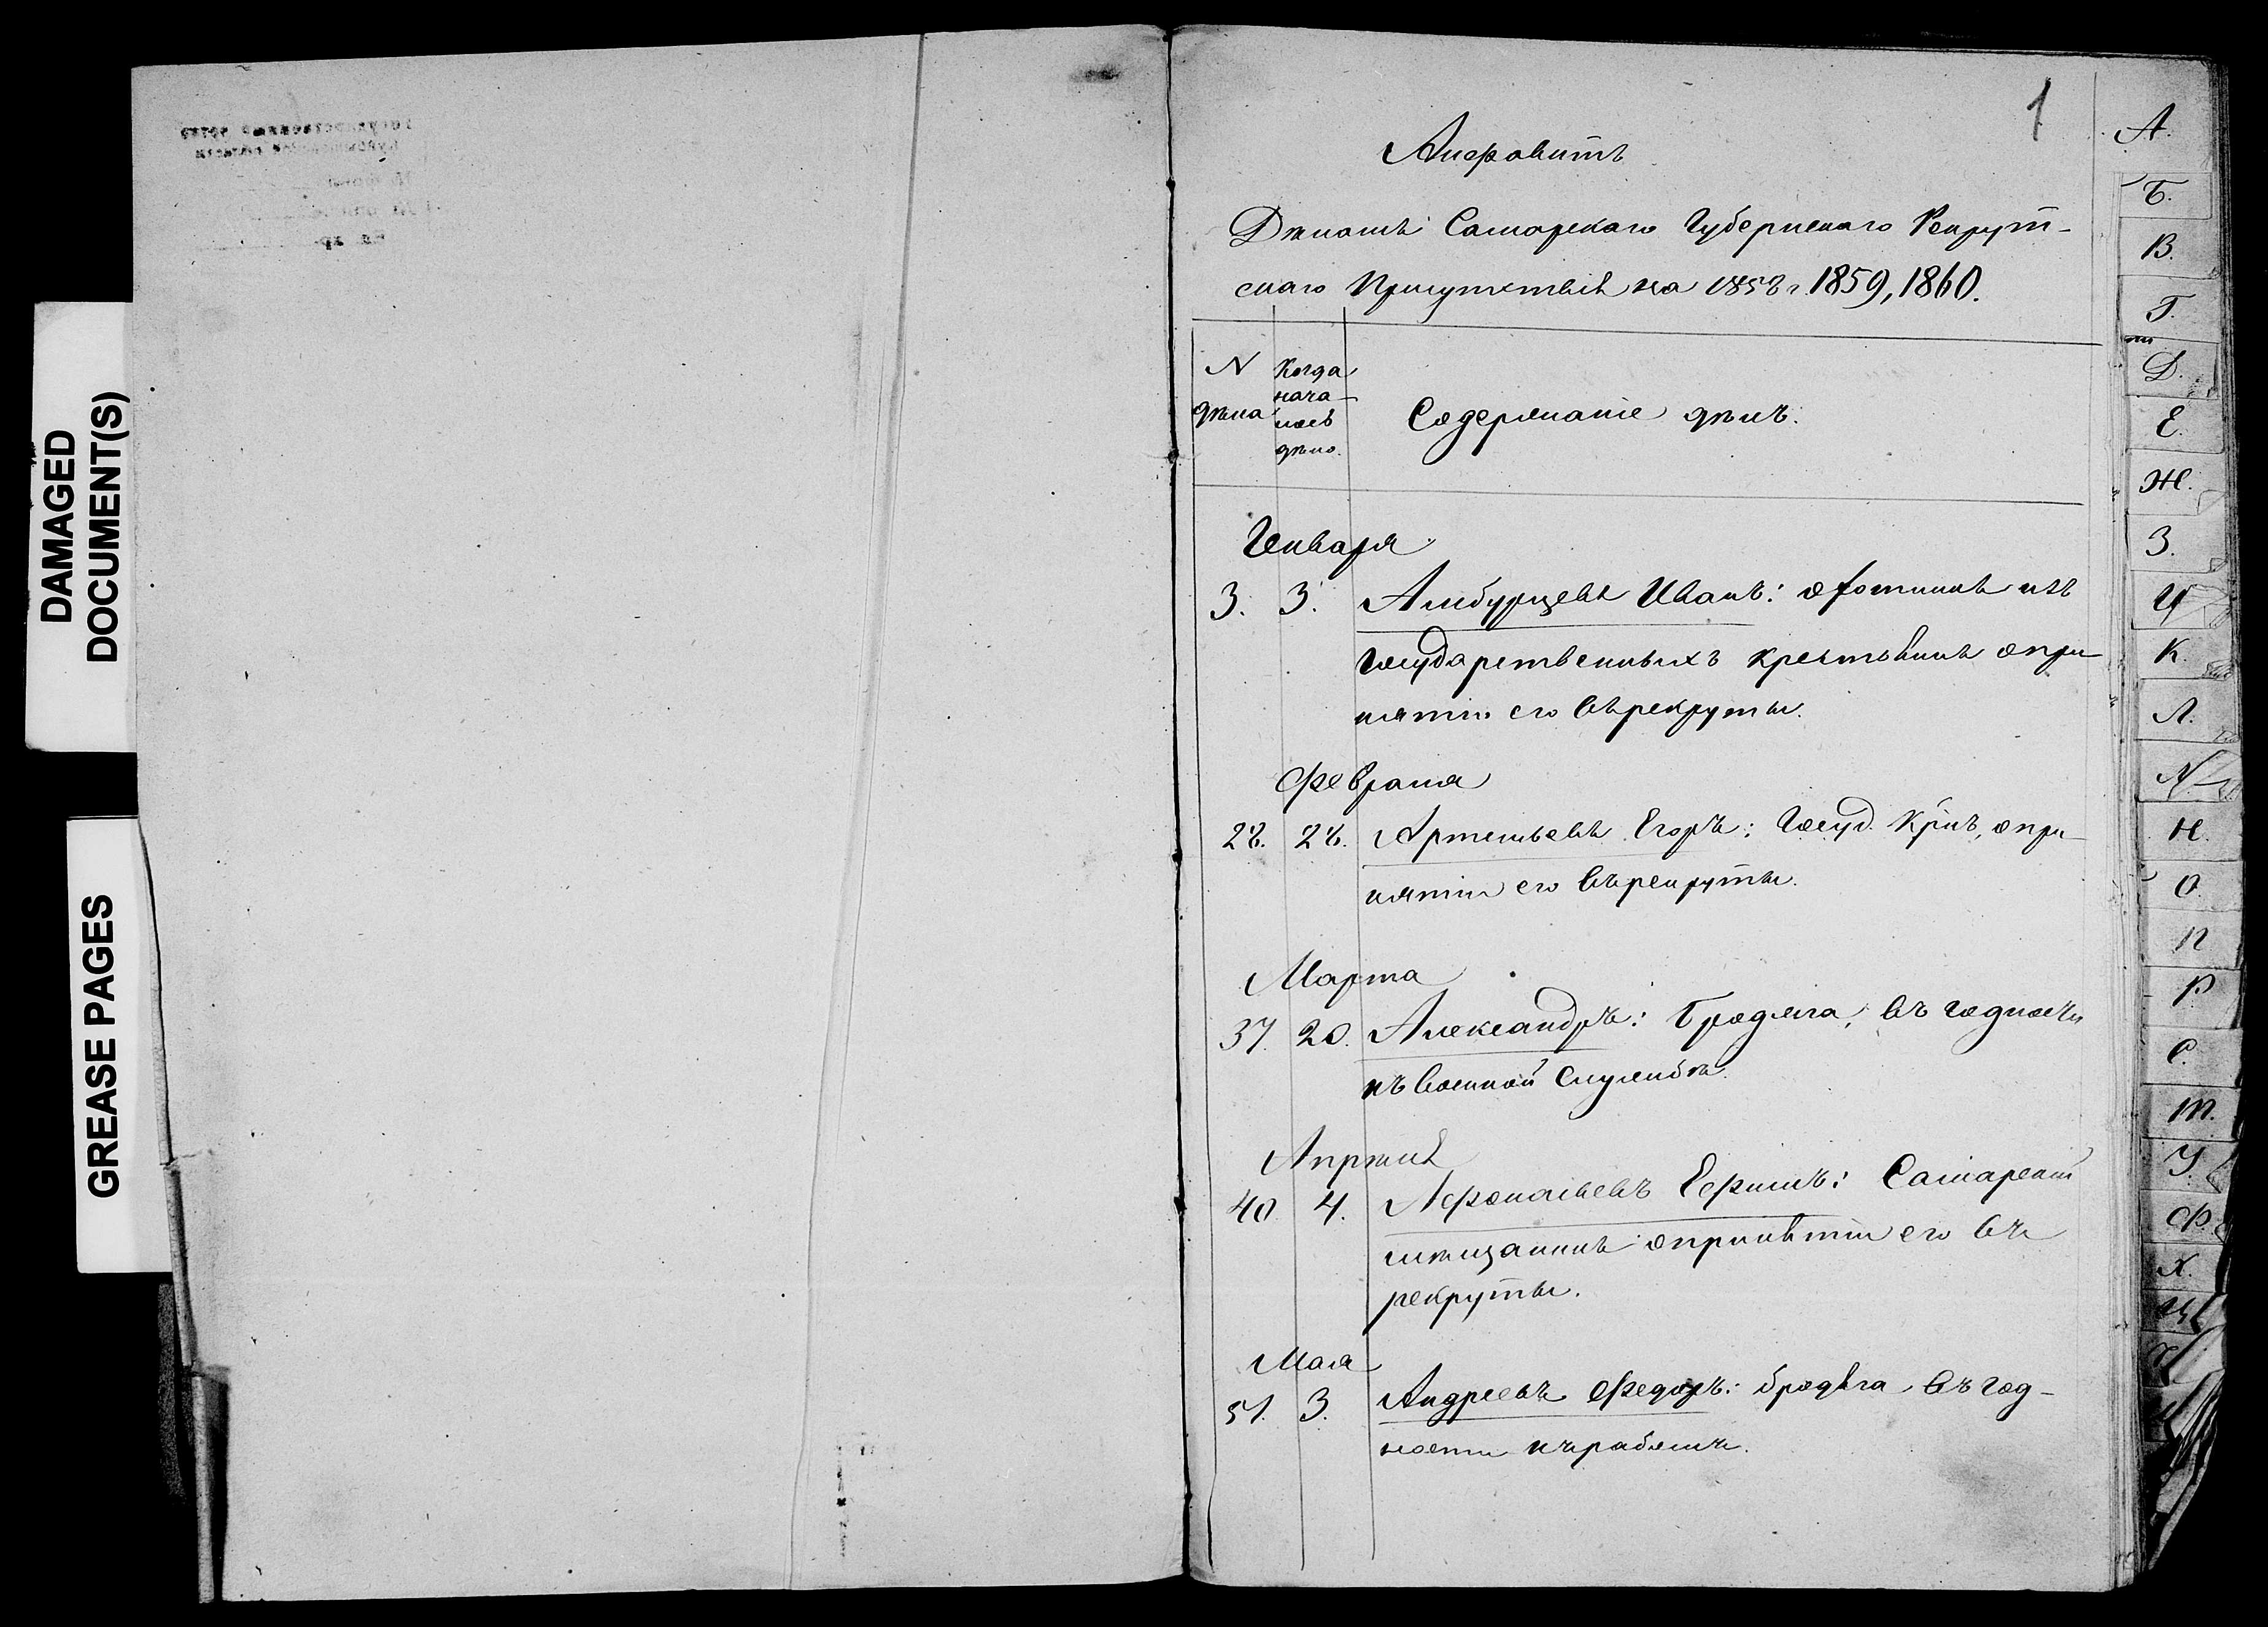 DAMAGED
DOCUMENT(S)
GREASE PAGES
1
Алфавитъ
Дѣламъ Самарскаго Губернскаго Рекрут-
скаго Присутствія на 1858 г. 1859, 1860.
N дѣла
Когда нача-
лось
дѣло.
Содержаніе дѣлъ.
Генваря
3. 3. Иванъ: охотникъ изъ
государственныхъ крестьянъ о при-
нятіи его въ рекруты.
Февраля
28. 28. Артемьевъ Егоръ: Госуд. Крнъ, о при-
нятіи его въ рекруты.
Марта
37. 20. Александръ: Бродяга, въ годности
къ военной службѣ.
Апрѣля
40 4. Афонасьевъ Ефимъ: Самарскій
мѣщанинъ о принятіи его въ
рекруты.
Мая
51. 3. Андреевъ Федоръ: бродяга въ год-
ности къ
А.
Б.
В.
Г.
Д.
Е.
Ж.
З.
И
К.
Л.
М
Н.
О.
П
Р
С.
Т.
У.
Ф.
Х.
Ц
Ч